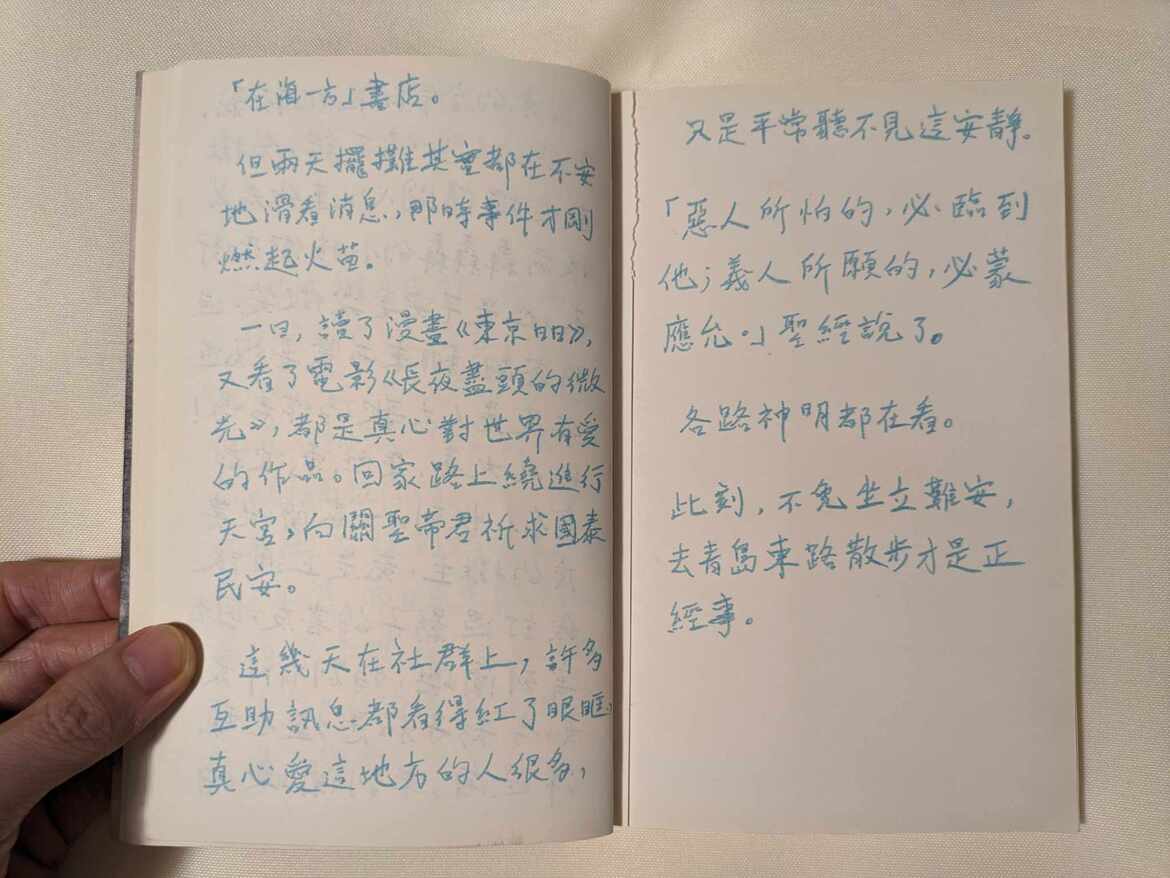 「在海一方」書店。
但兩天擺攤其實都在不安
地滑看消息，那時事件才剛
燃起火苗。
一日，讀了漫畫《東京日日》，
又看了電影《長夜盡頭的微
光》，都是真心對世界有愛
的作品。回家路上繞進行
天宮，向關聖帝君祈求國泰
民安。
這幾天在社群上，許多
互助訊息都看得紅了眼眶，
真心愛這地方的人很多，
只是平常聽不見這安靜。
「惡人所怕的，必臨到
他；義人所願的，必蒙
應允。」聖經說了。
各路神明都在看。
此刻，不免坐立難安，
去青島東路散步才是正
經事。